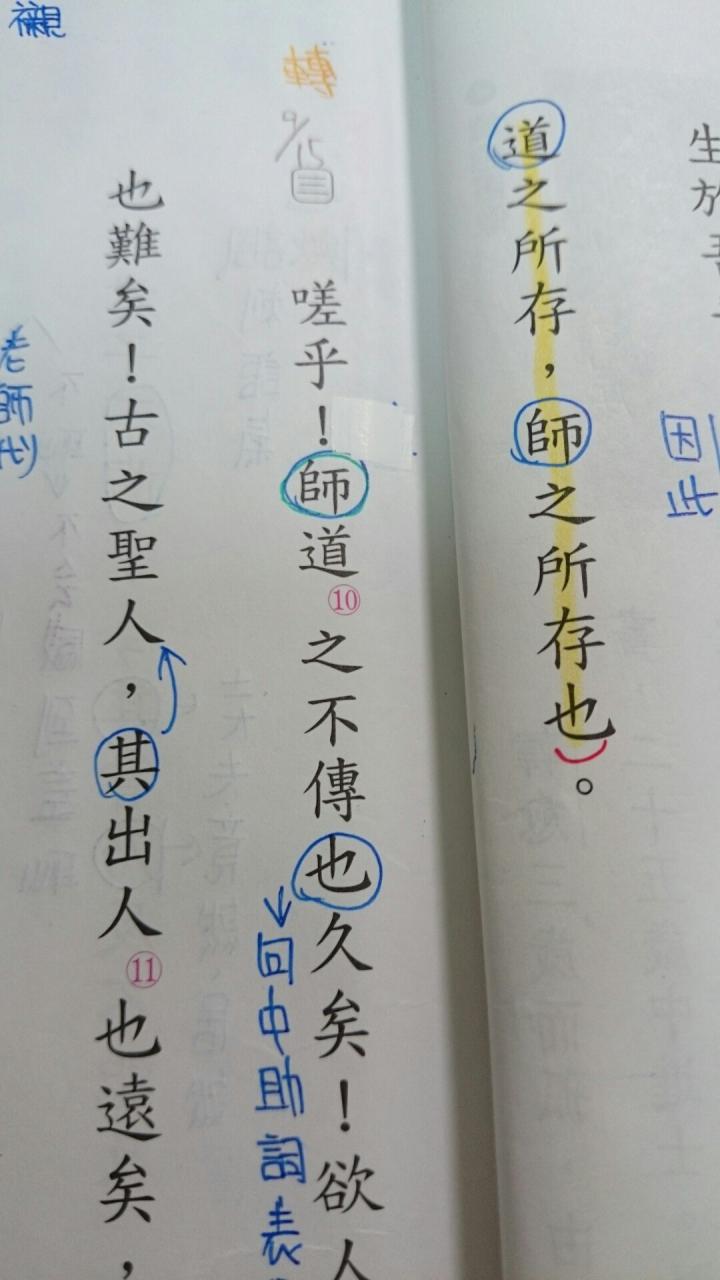 道之所存，師之所存也。
因此
轉
9/15 三
嗟乎！師道⑩之不傳也久矣！欲人
也難矣！古之聖人，其出人⑪也遠矣，
老師
襯